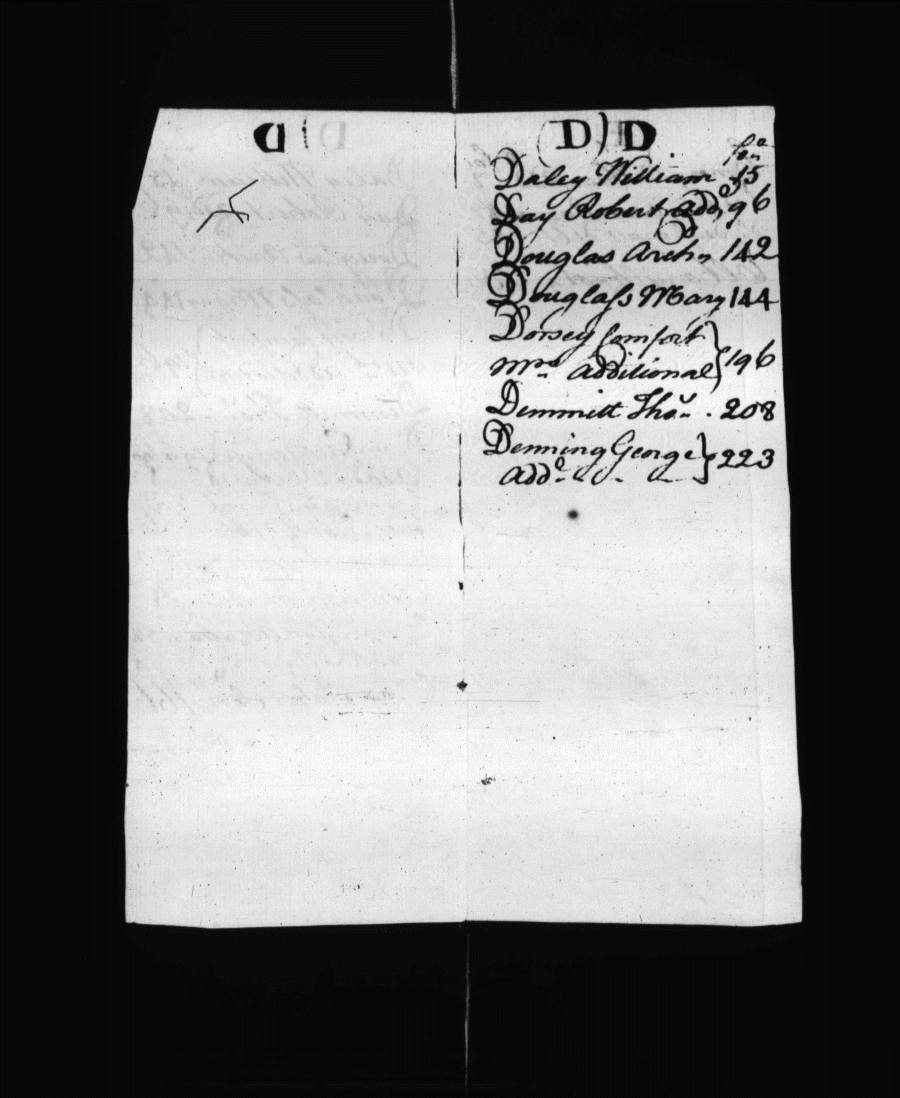 D
D
fo.
Daley William 15
Day Robert, add.o 96
Douglas Arch.d 142
Douglass Mary 144
Dorsey Comfort
Mrs. Additional } 196
Demmitt Tho.s . 208
Denning George } 223
Add.o